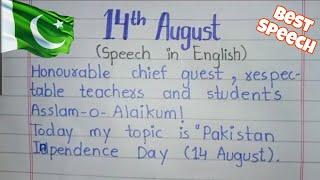 14th August
BEST SPEECH
(Speech in English)
Honourable chief guest, respec-
table teachers and students
Asslam-o-Alaikum!
Today my topic is "Pakistan
Inpendence Day (14 August).